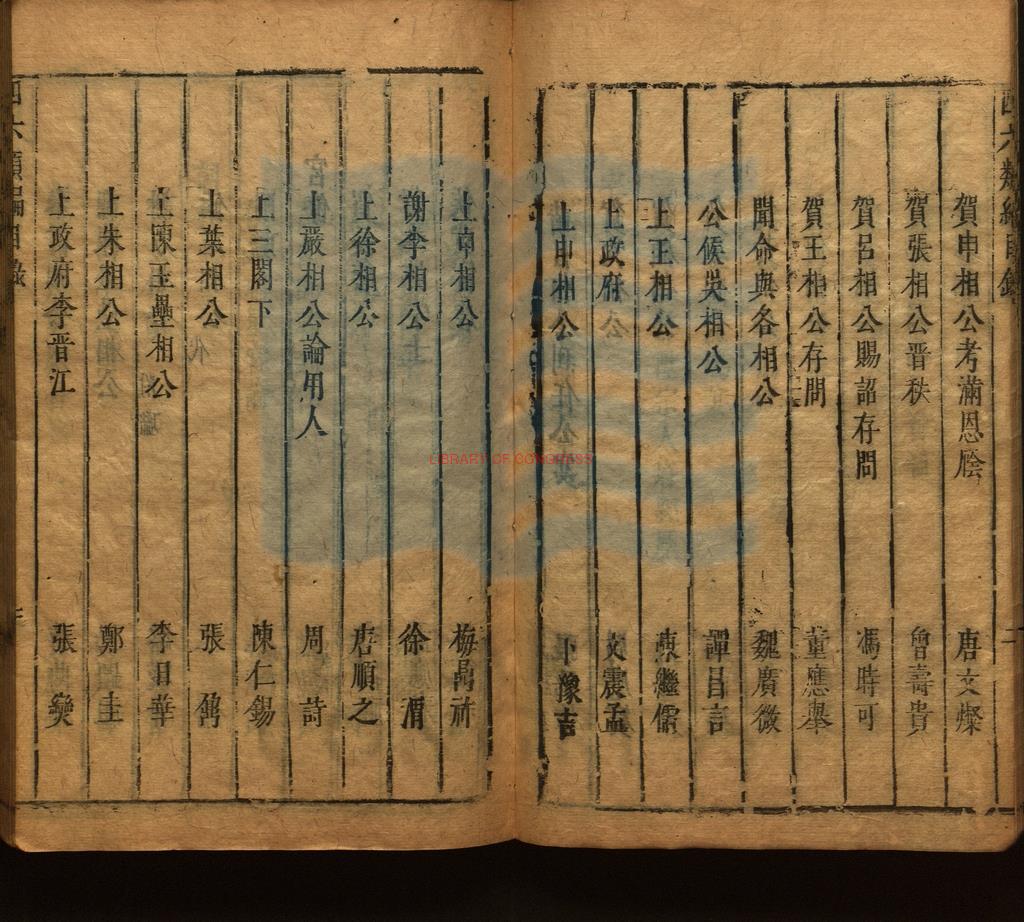 四六類編目錄
賀申相公考滿恩廕 唐文燦
賀張相公晋秩 曾壽貴
賀呂相公賜詔存問 馮時可
賀王相公存問 董應舉
聞命與各相公 魏廣微
公候吳相公 譚昌言
上王相公 陳繼儒
上政府 文震孟
上申相公 卜豫吉
上申相公 梅鼎祚
謝李相公 徐渭
上徐相公 唐順之
上嚴相公論用人 周詩
上三閣下 陳仁錫
上葉相公 張鼐
上陳玉壘相公 李日華
上朱相公 鄭圭
上政府李晋江 張燮
四六類編目錄
LIBRARY OF CONGRESS